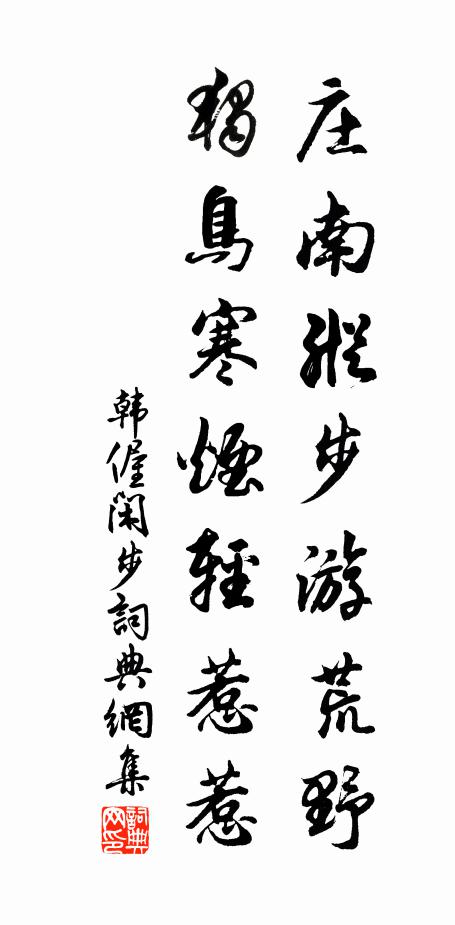 庄南縱步游荒野
獨鳥寒煙輕惹惹
韩偓閑步詞典網集
詞典網印